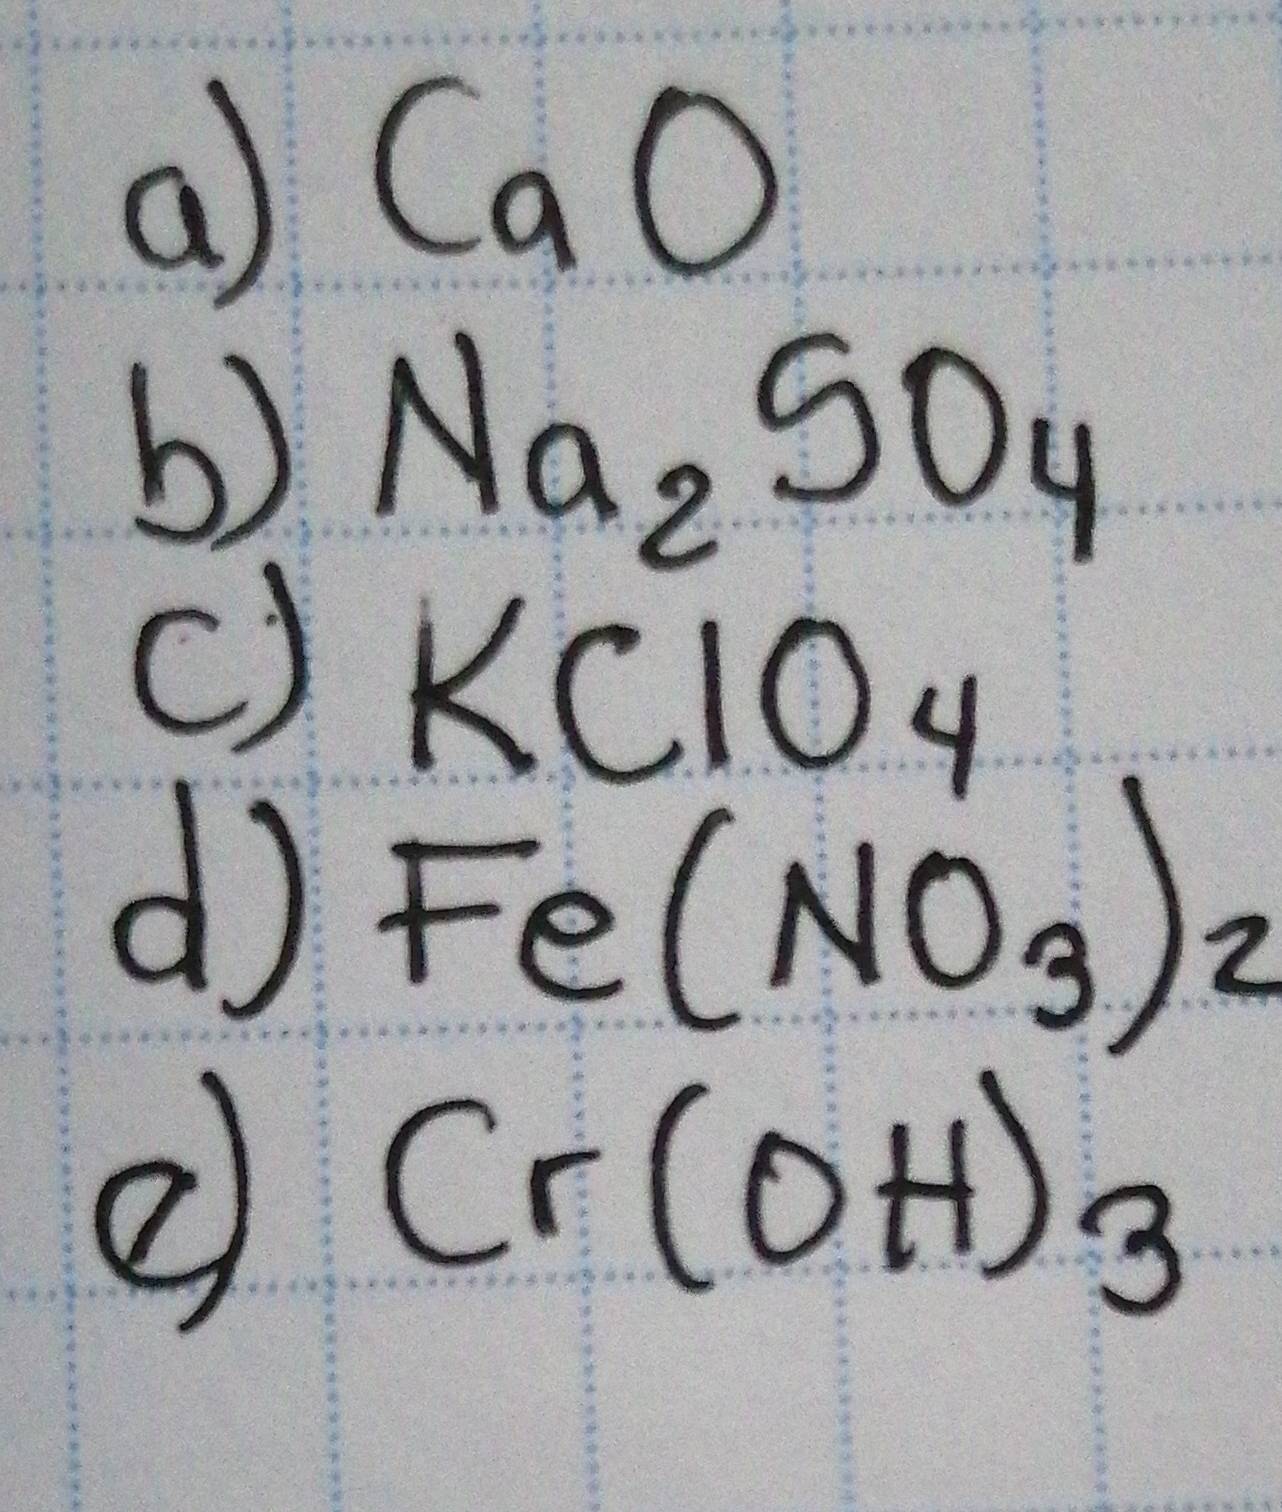 a) CaO
b) Na₂SO₄
c) KClO₄
d) Fe(NO₃)₂
e) Cr(OH)₃